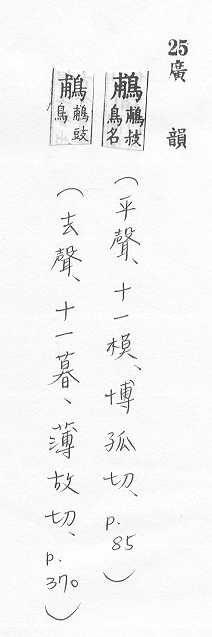 25廣韻
鵏 鵏 鳥名
(平聲、十一模、博孤切、p.85)
鵏 鵏豉鳥
(去聲、十一暮、薄故切、p.370)